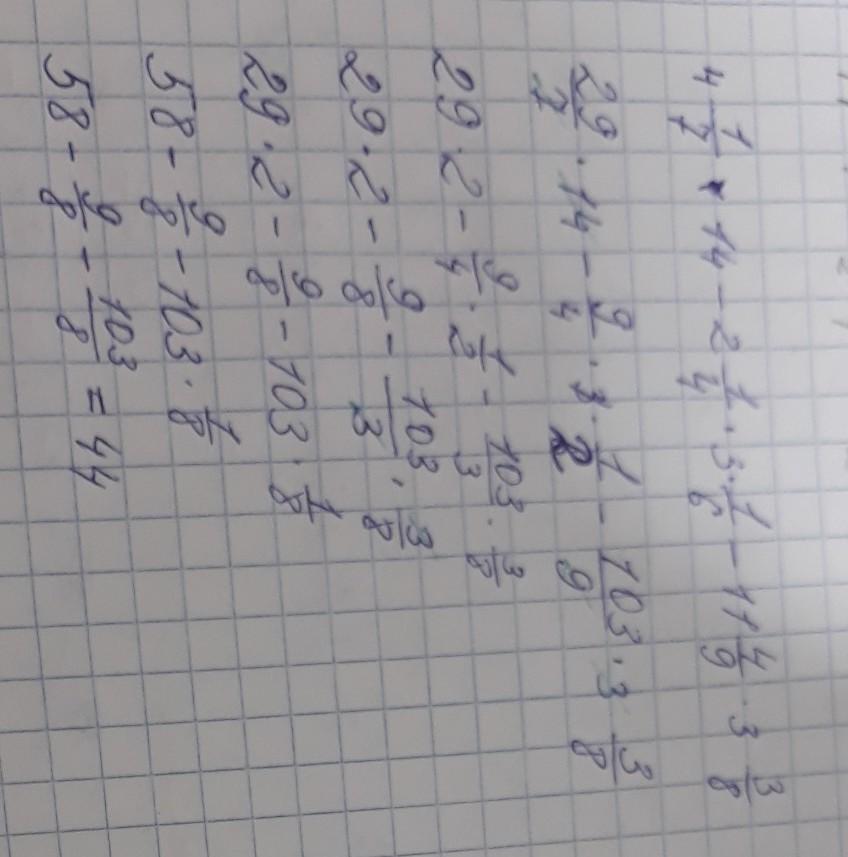 4 1/7 · 14 - 2 1/4 · 3 · 1/6 - 11 4/9 · 3 3/8
29/7 · 14 - 9/4 · 3 · 1/2 - 103/9 · 3 3/8
29 · 2 - 9/4 · 1/2 - 103/3 · 3/8
29 · 2 - 9/8 - 103/3 · 3/8
29 · 2 - 9/8 - 103 · 1/8
58 - 9/8 - 103 · 1/8
58 - 9/8 - 103/8 = 44